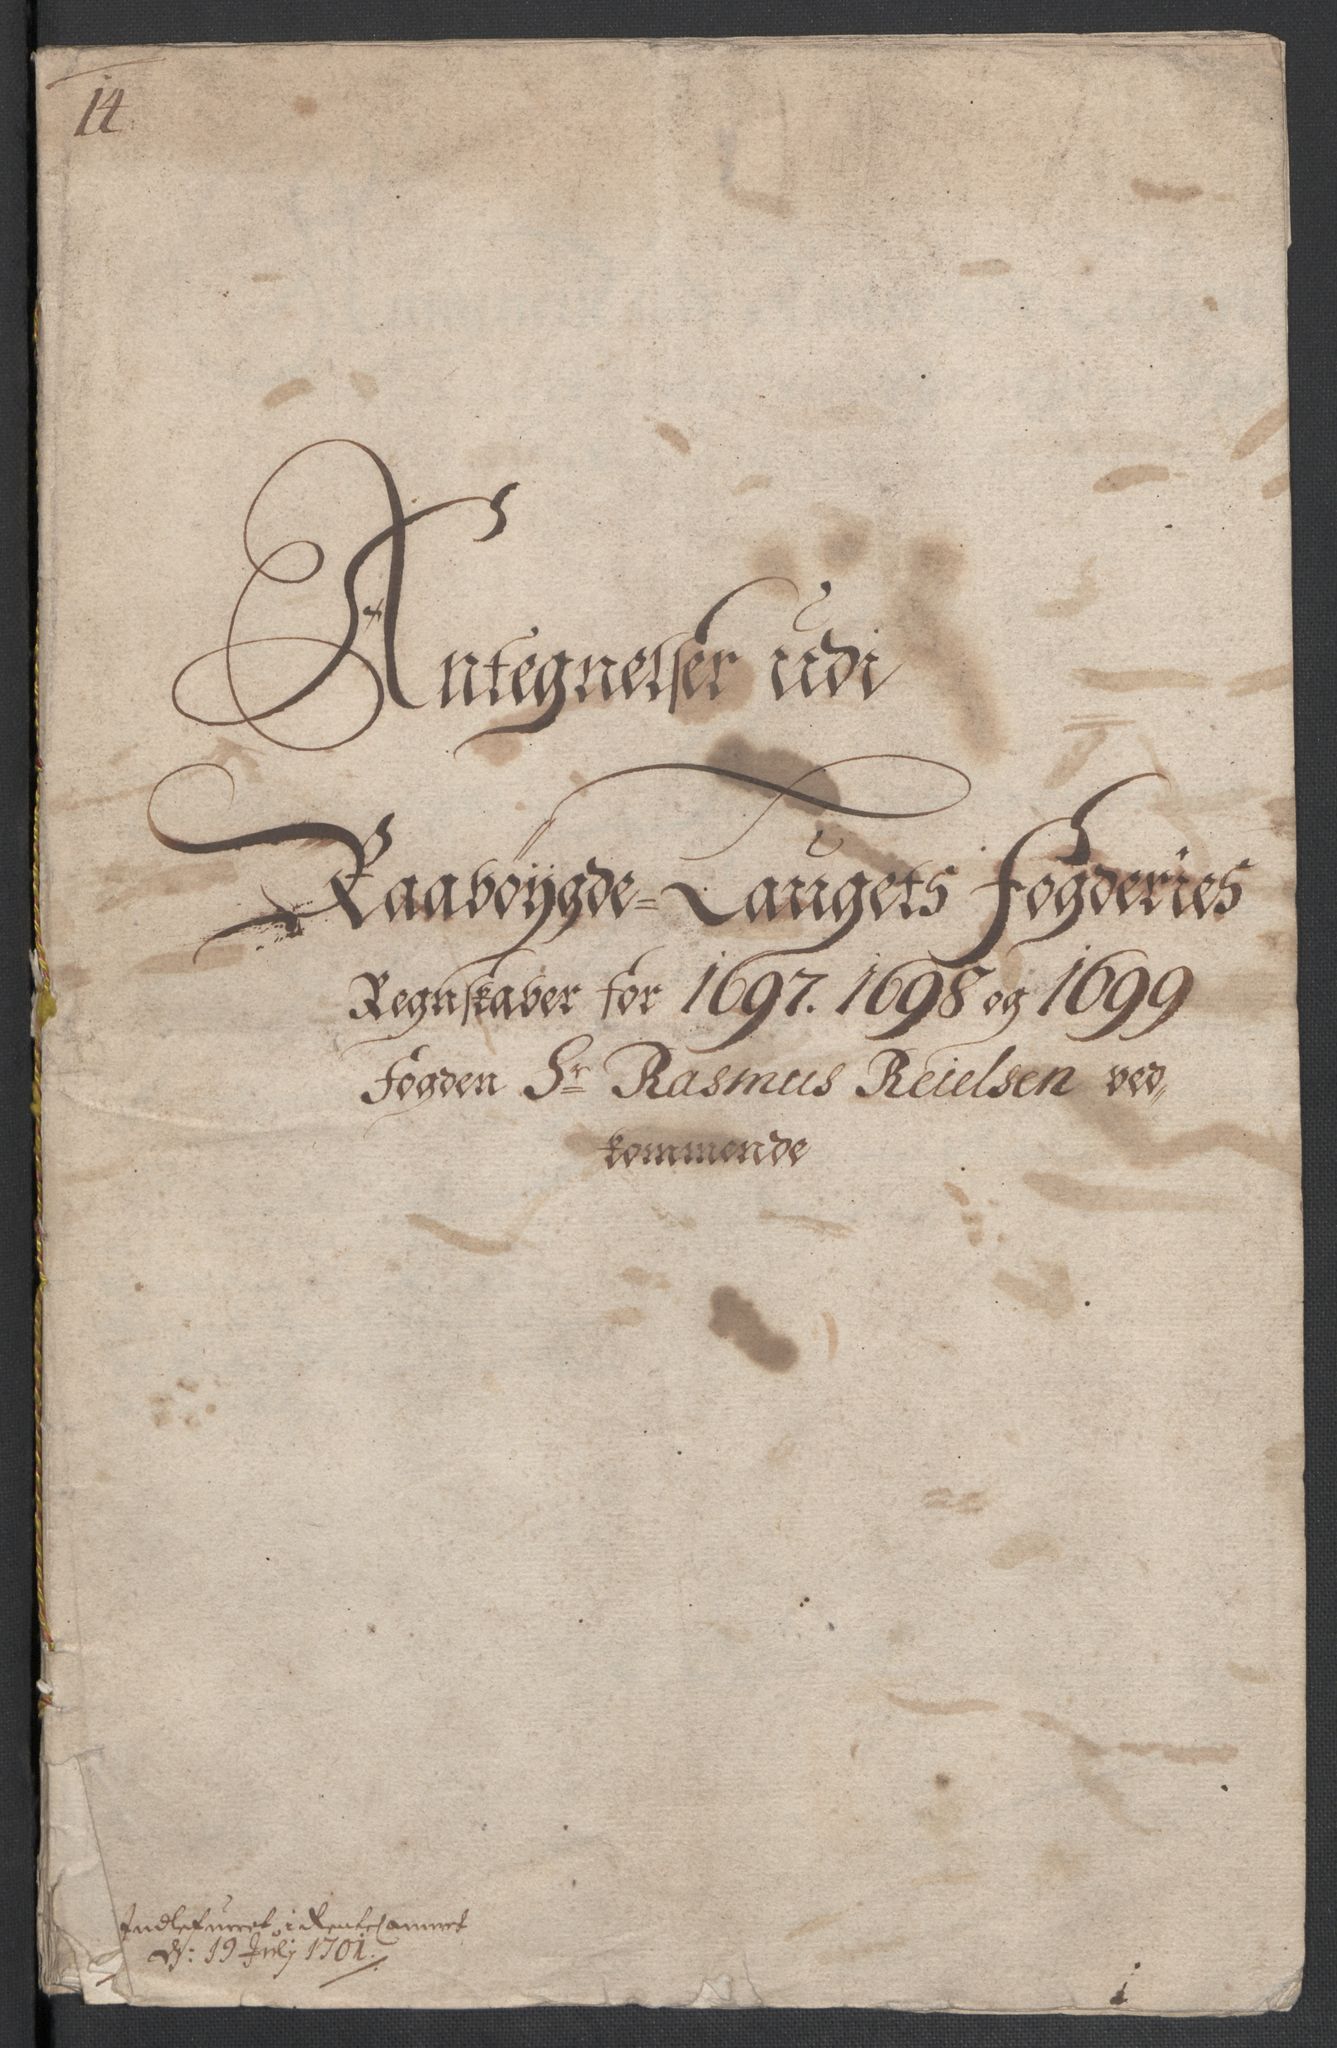 14
Antegnelser udi
Raaböÿgde=Laugets Fogderies
Regnskaber for 1697. 1698 og 1699
Fogden Sr Rasmus Reielsen ved,,
kommende
Indlefueret i RenteCammeret
d: 19 Julÿ 1701.
1